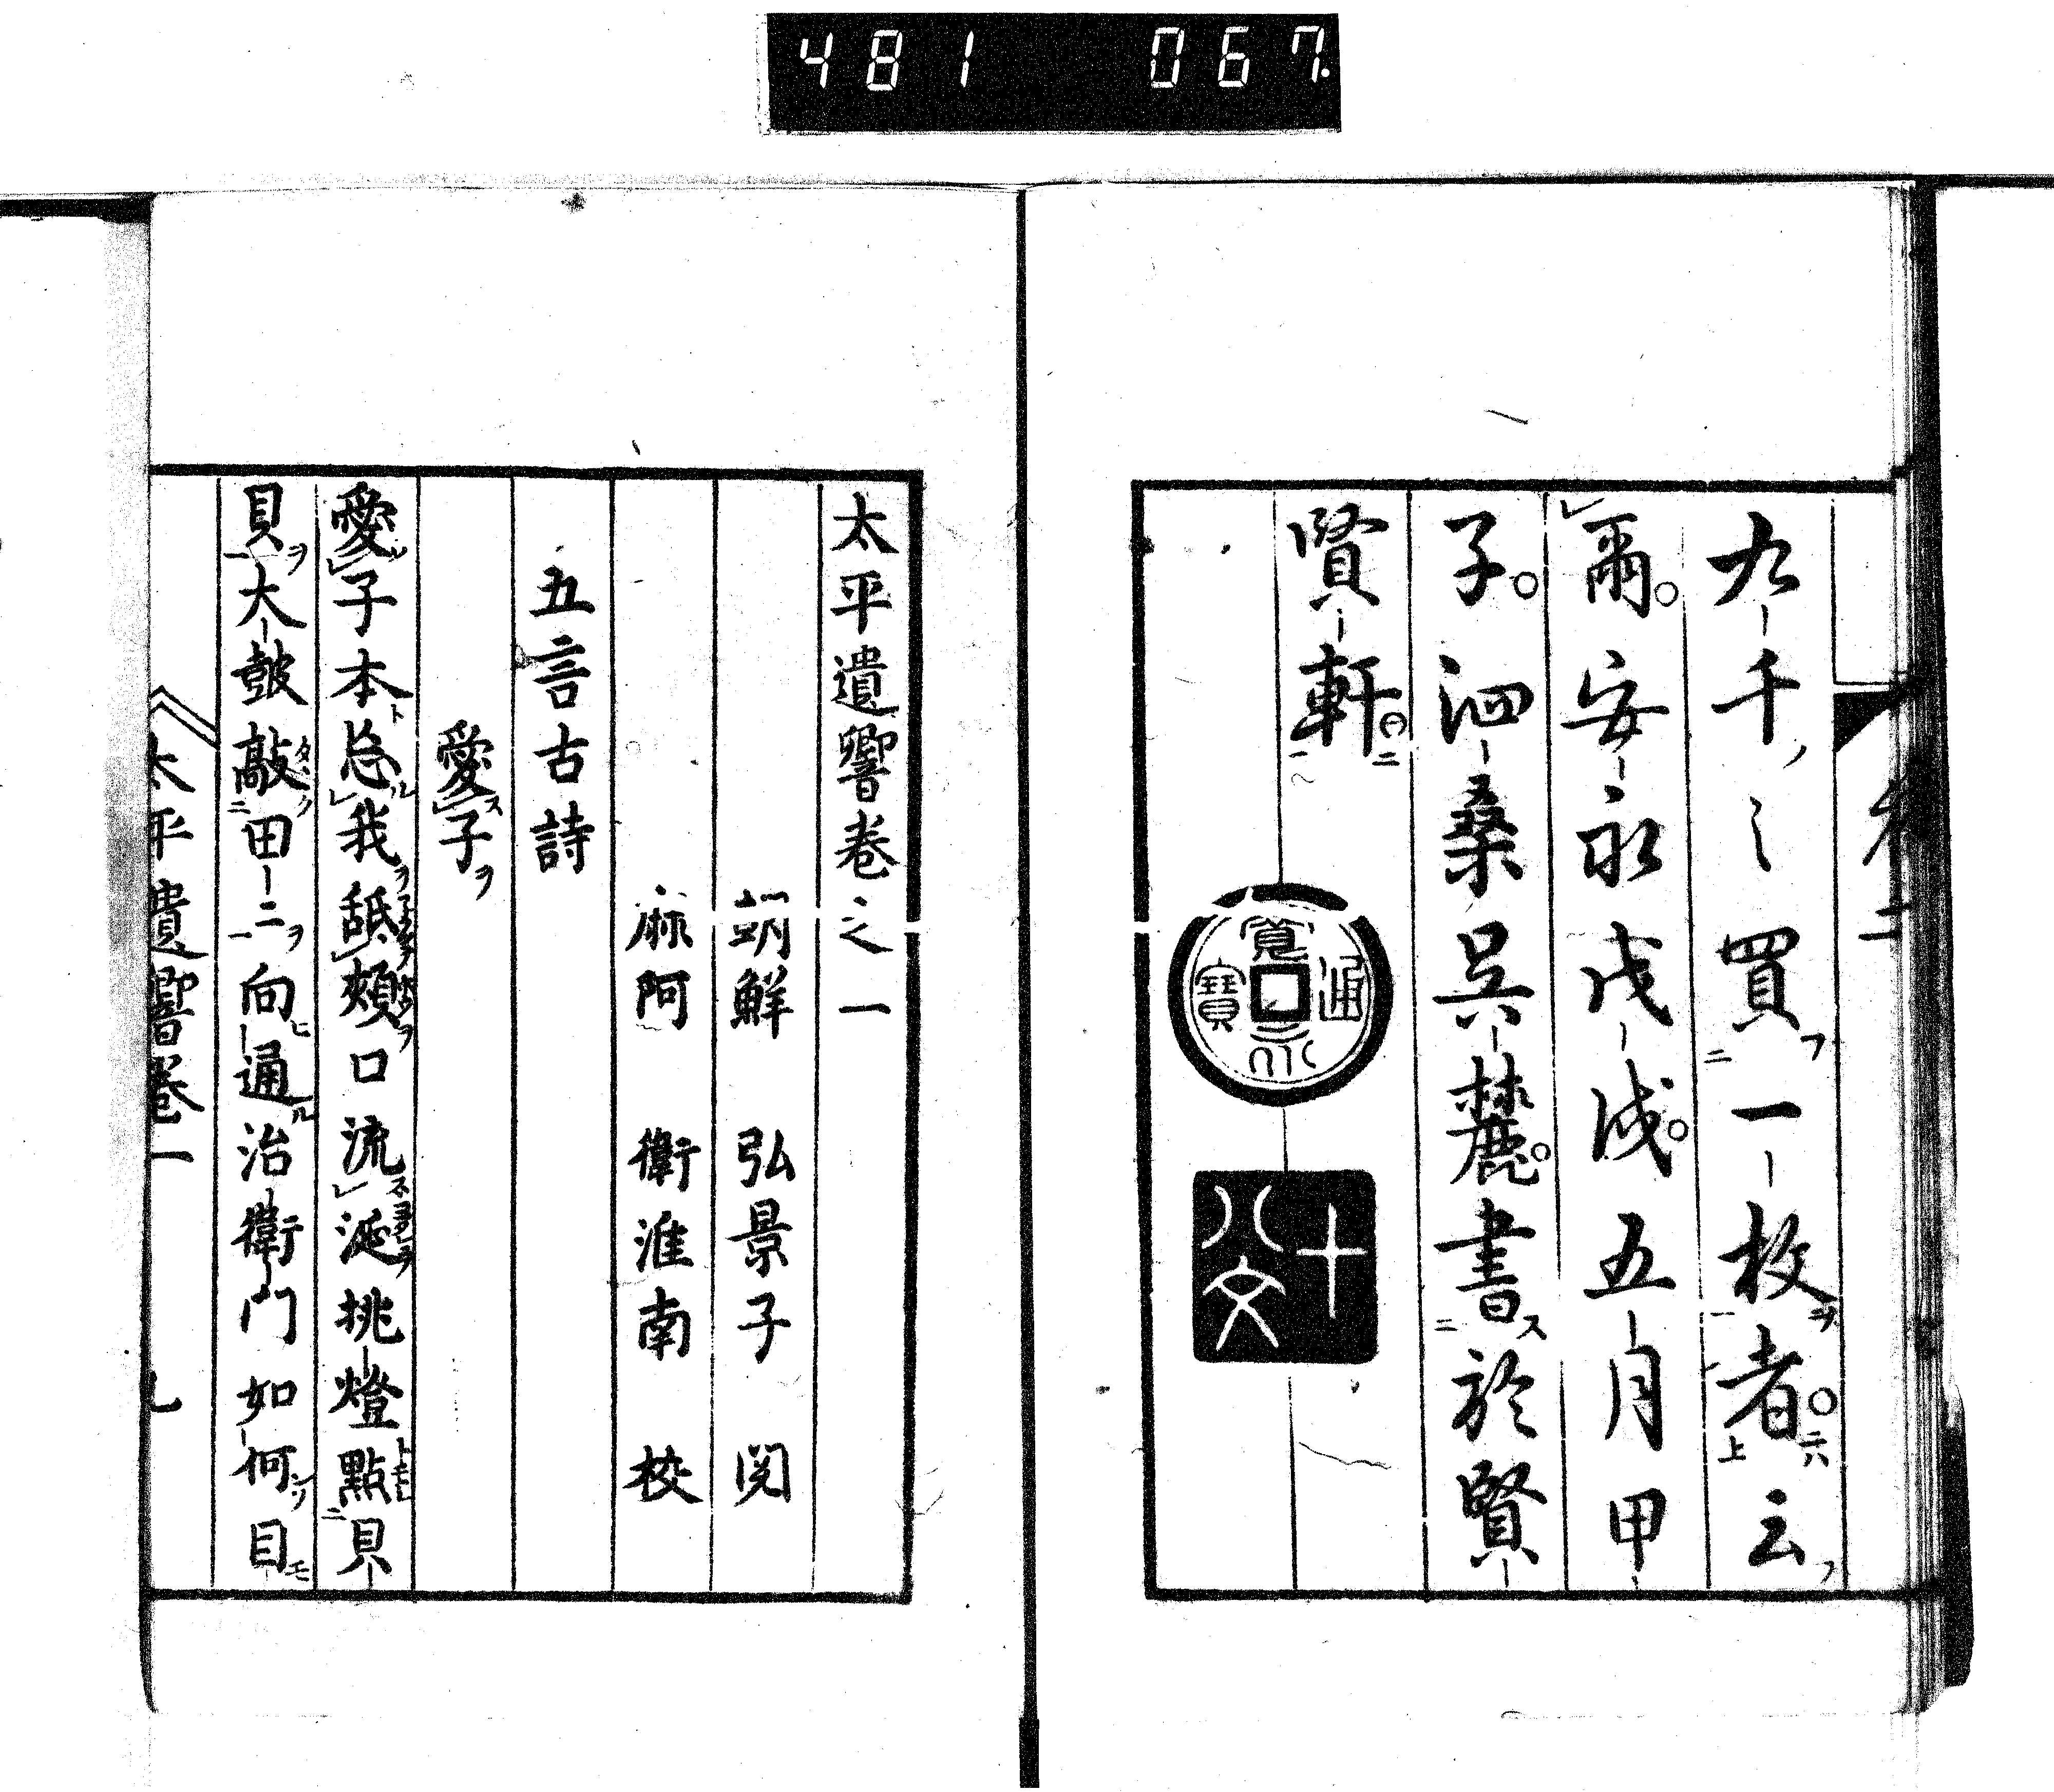 481 067.
九千之買一枚者云
爾安永戊戌五月甲
子泗桑呉麓書於賢
賢軒
寛永通寳
十八文
太平遺響巻之一
朝鮮 弘景子 閲
麻阿 衛淮南 校
五言古詩
愛子
愛子本忘我舐頬口流涎挑燈點貝
貝大鼓敲田二向通治衛門如何目
太平遺響巻一 九